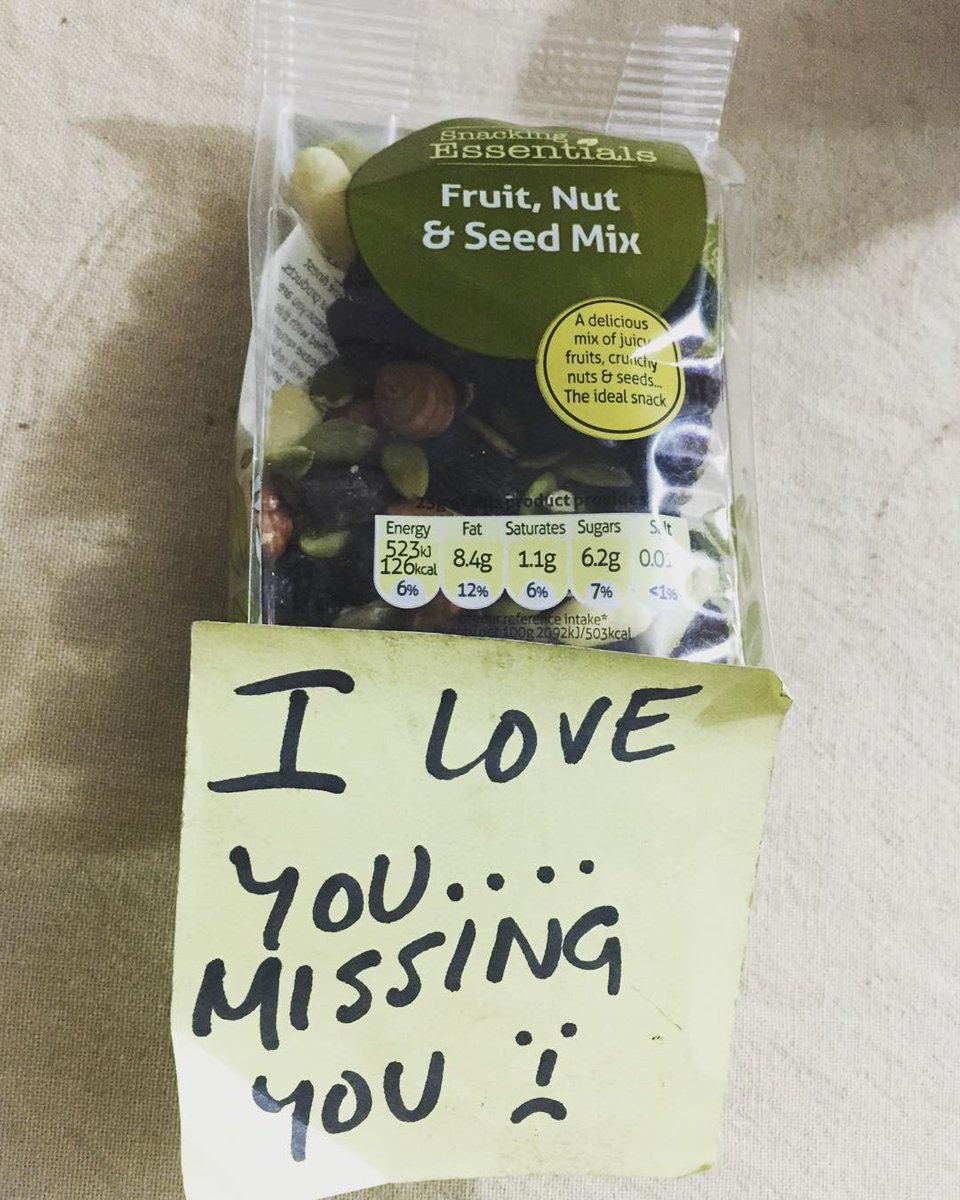 Snacking
Essentials
Fruit, Nut
& Seed Mix
A delicious
mix of juicy
fruits, crunchy
nuts & seeds...
The ideal snack
product provides
Energy Fat Saturates Sugars Salt
523kJ
126kcal 8.4g 1.1g 6.2g
6% 12% 6% 7% <1%
reference intake*
100g 2092kJ/503kcal
I LOVE
YOU....
MISSING
YOU